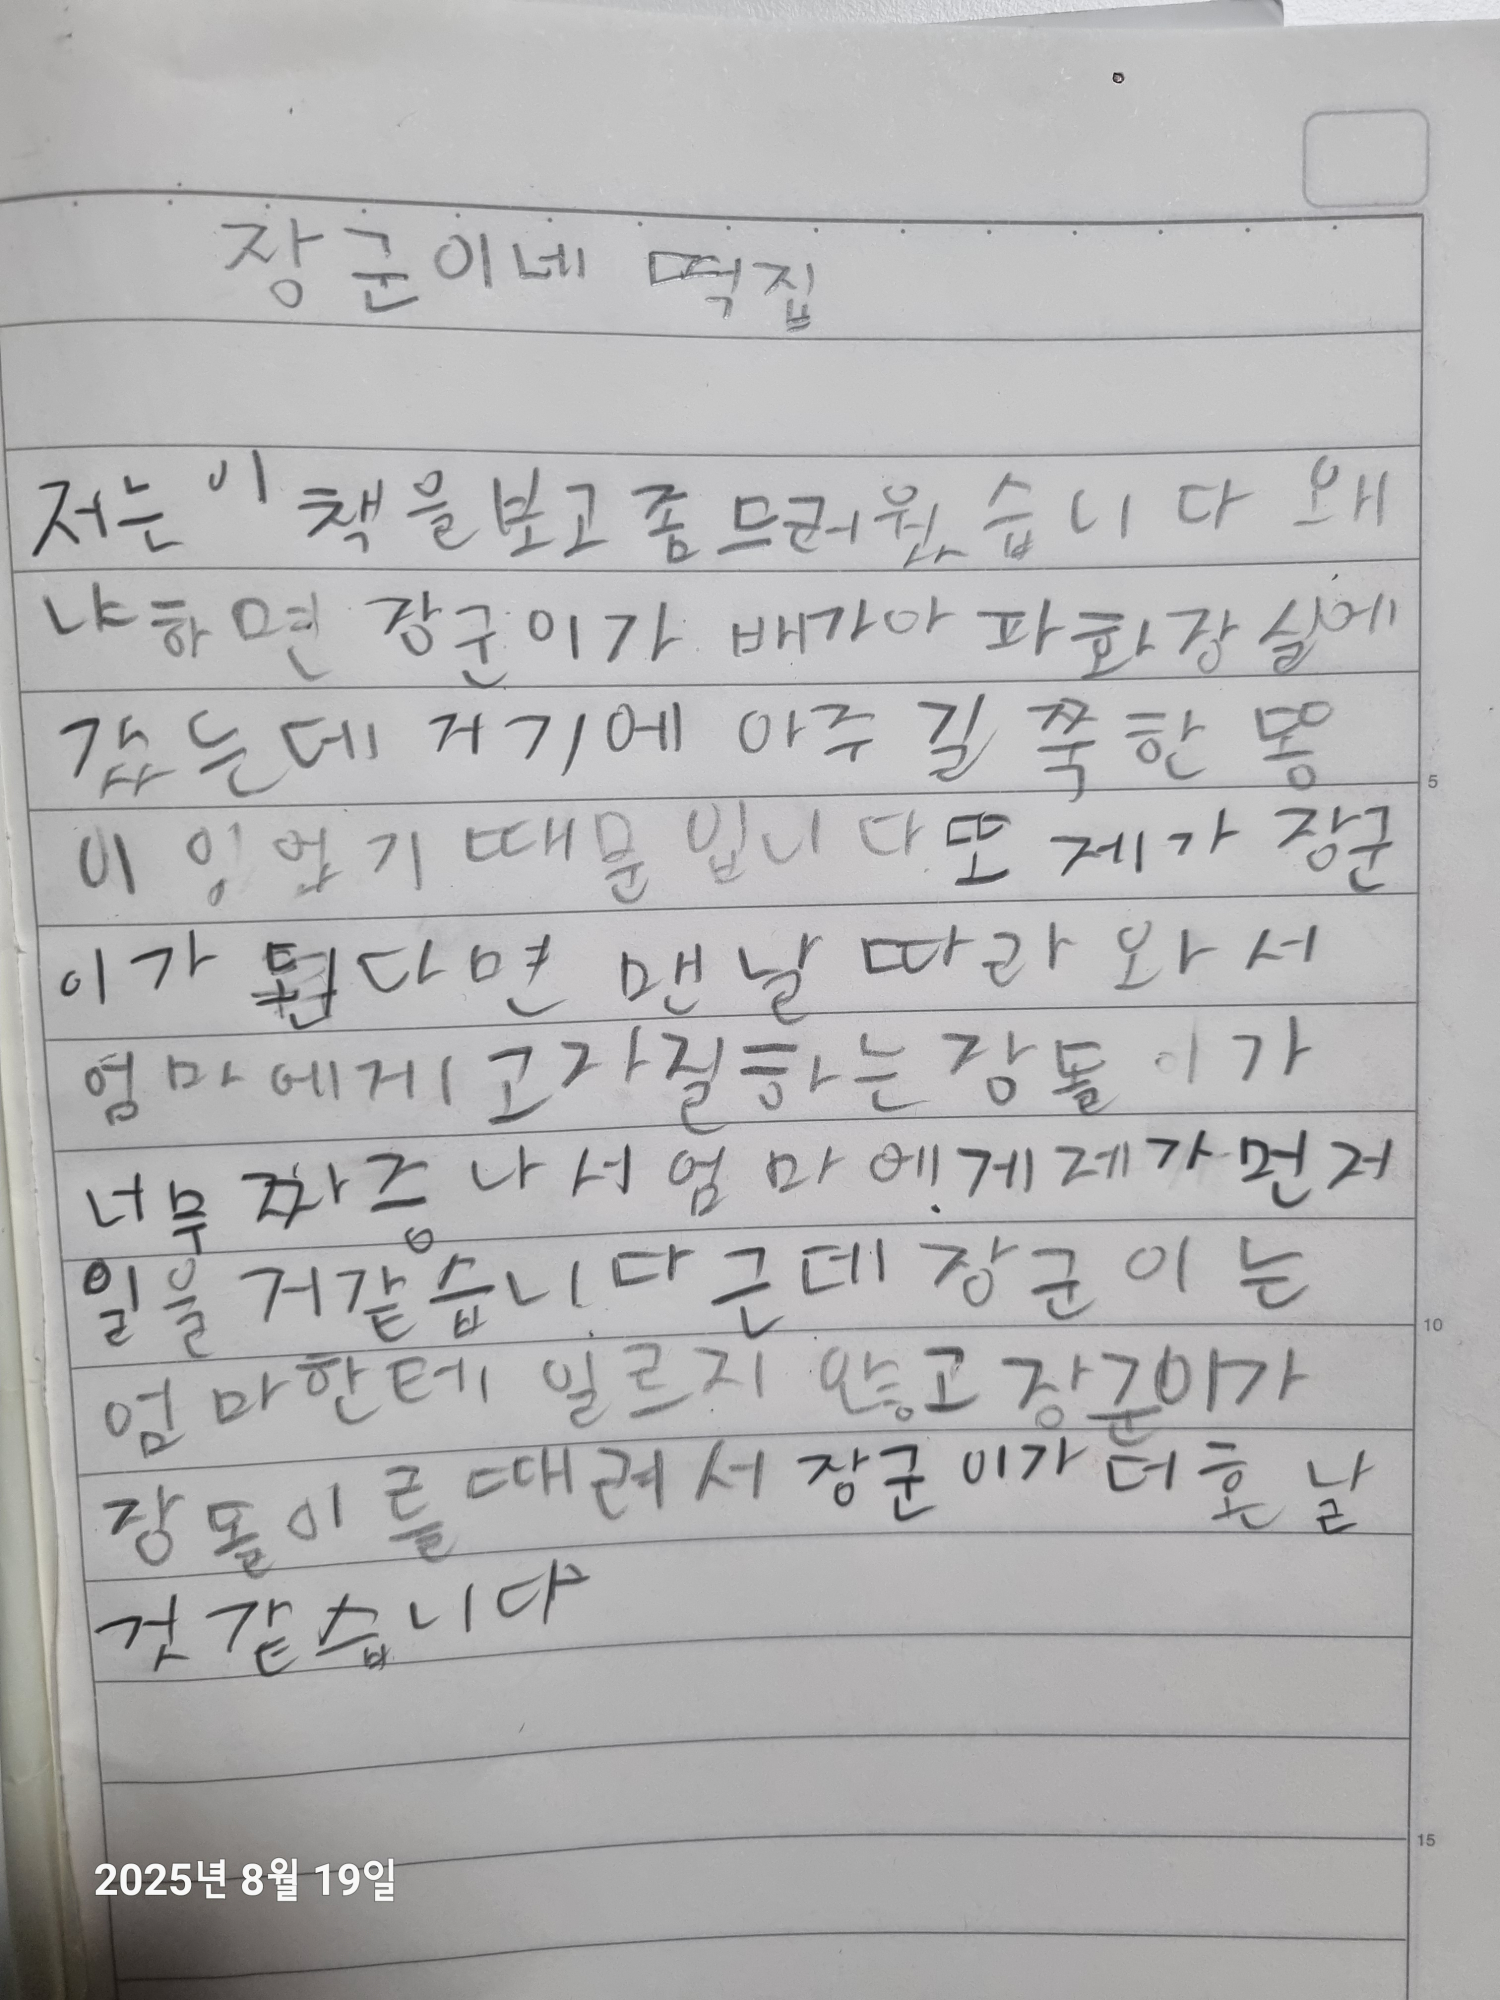 장군이네 떡집
저는 이 책을 보고 좀 드러웠습니다 왜
냐하면 장군이가 배가아파 화장실에
갔는데 거기에 아주 길쭉한 똥
이 있었기 때문입니다 또 제가 장군
이가 됀다면 맨날 따라와서
엄마에게 고자질하는 장돌이가
너무 짜증나서 엄마에게 제가 먼저
일을 거같습니다 근데 장군이는
엄마한테 일르지 않고 장군이가
장돌이를 때려서 장군이가 더 혼날
것 같습니다
5
10
15
2025년 8월 19일